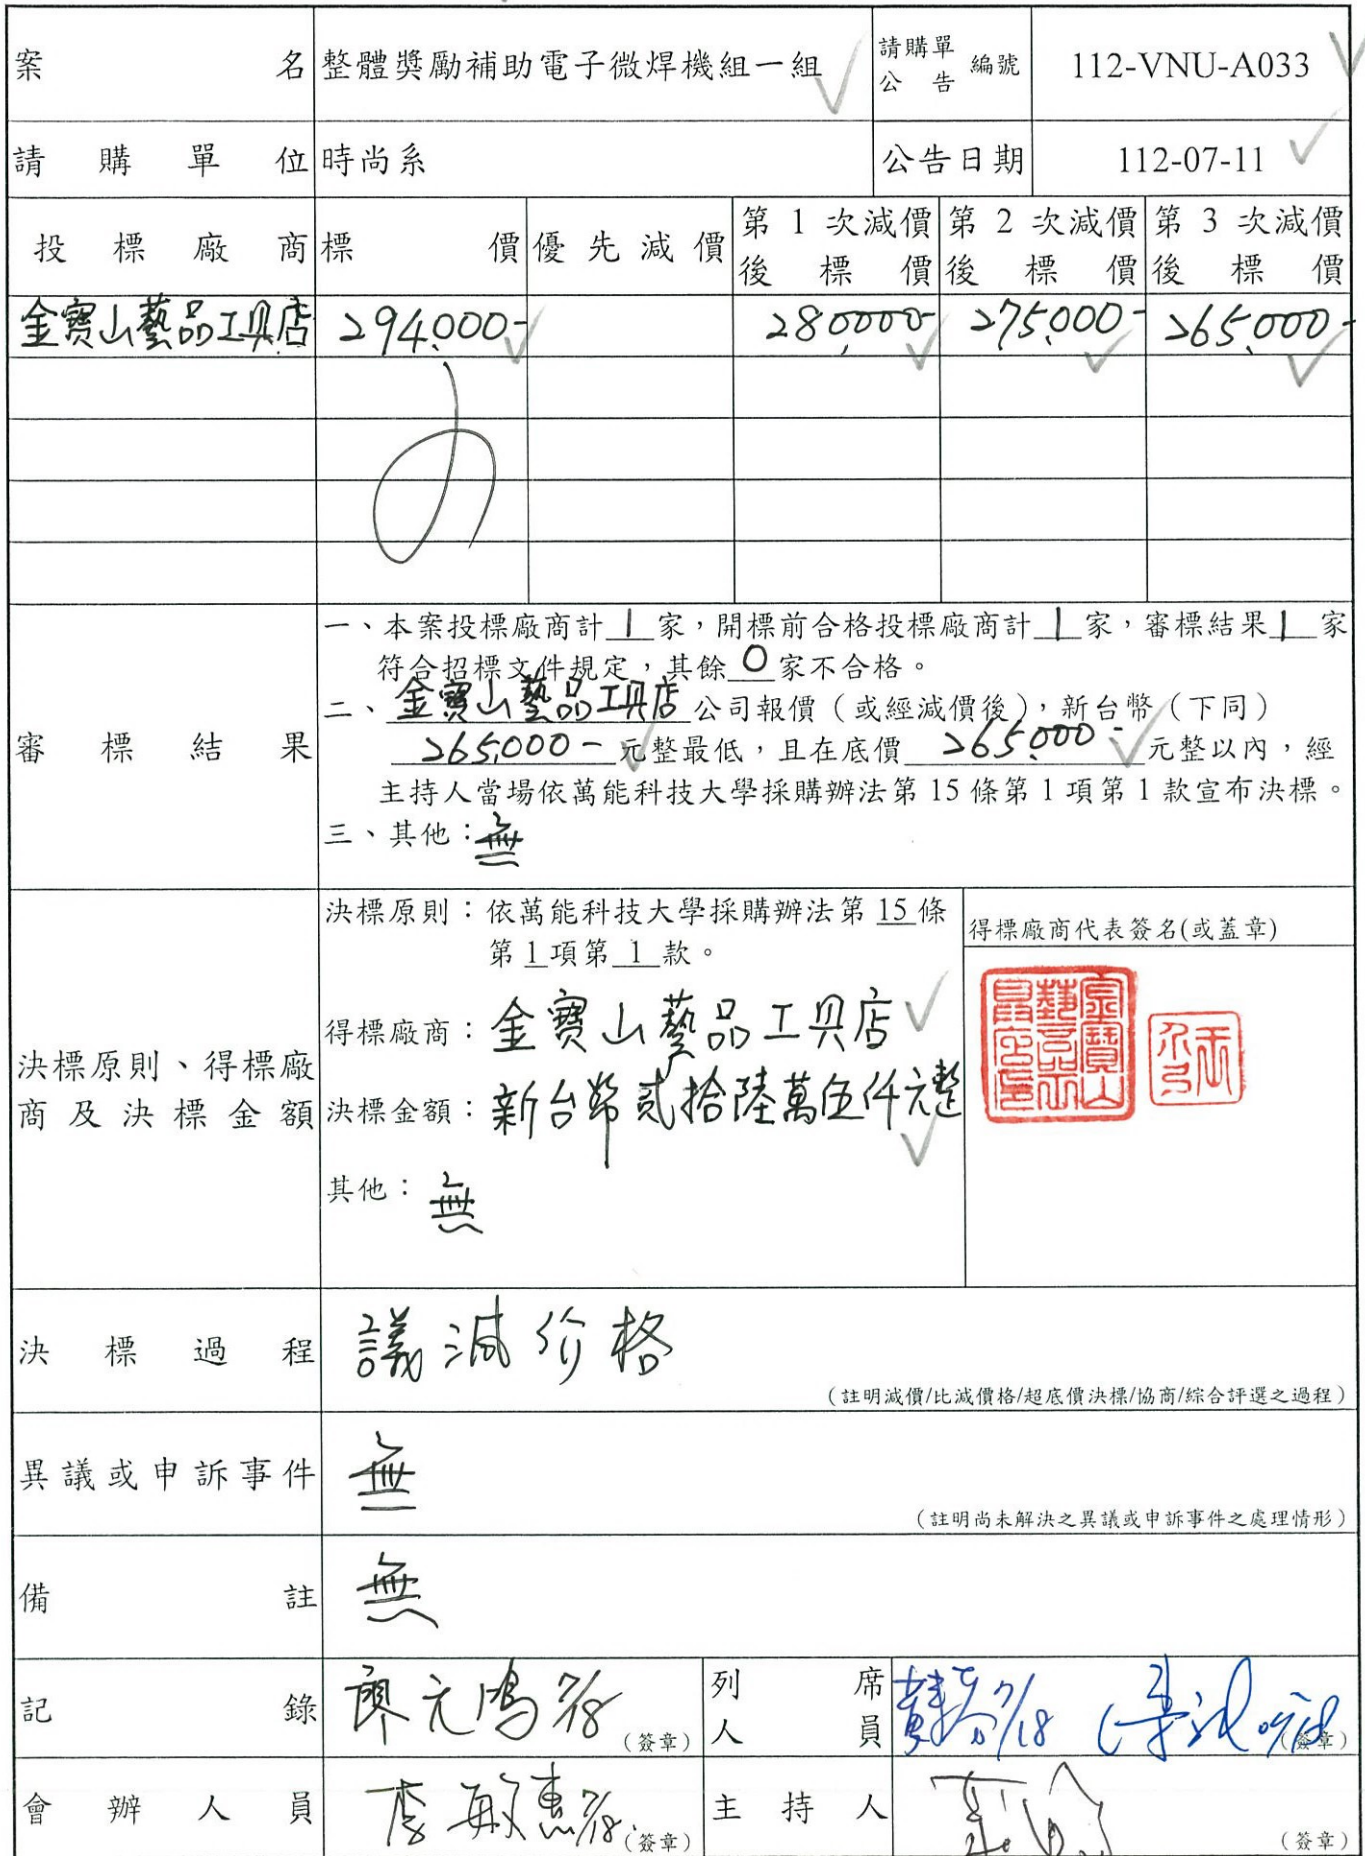 案名 整體獎勵補助電子微焊機組一組 請購單公告編號 112-VNU-A033
請購單位 時尚系 公告日期 112-07-11
投標廠商 標價 優先減價 第1次減價後標價 第2次減價後標價 第3次減價後標價
金寶山藝品工具店 294,000- 280,000- 275,000- 265,000-
審標結果
一、本案投標廠商計1家,開標前合格投標廠商計1家,審標結果1家
符合招標文件規定,其餘0家不合格。
二、金寶山藝品工具店公司報價(或經減價後),新台幣(下同)
265,000-元整最低,且在底價265,000-元整以內,經
主持人當場依萬能科技大學採購辦法第15條第1項第1款宣布決標。
三、其他:無
決標原則、得標廠商及決標金額
決標原則:依萬能科技大學採購辦法第15條
第1項第1款。
得標廠商:金寶山藝品工具店
決標金額:新台幣貳拾陸萬伍仟元整
其他:無
得標廠商代表簽名(或蓋章)
決標過程 議減价格
(註明減價/比減價格/超底價決標/協商/綜合評選之過程)
異議或申訴事件 無
(註明尚未解決之異議或申訴事件之處理情形)
備註 無
記錄 廖元鴻 7/18 (簽章) 列席人員 7/18 (簽章)
會辦人員 李敏惠 7/18 (簽章) 主持人 (簽章)